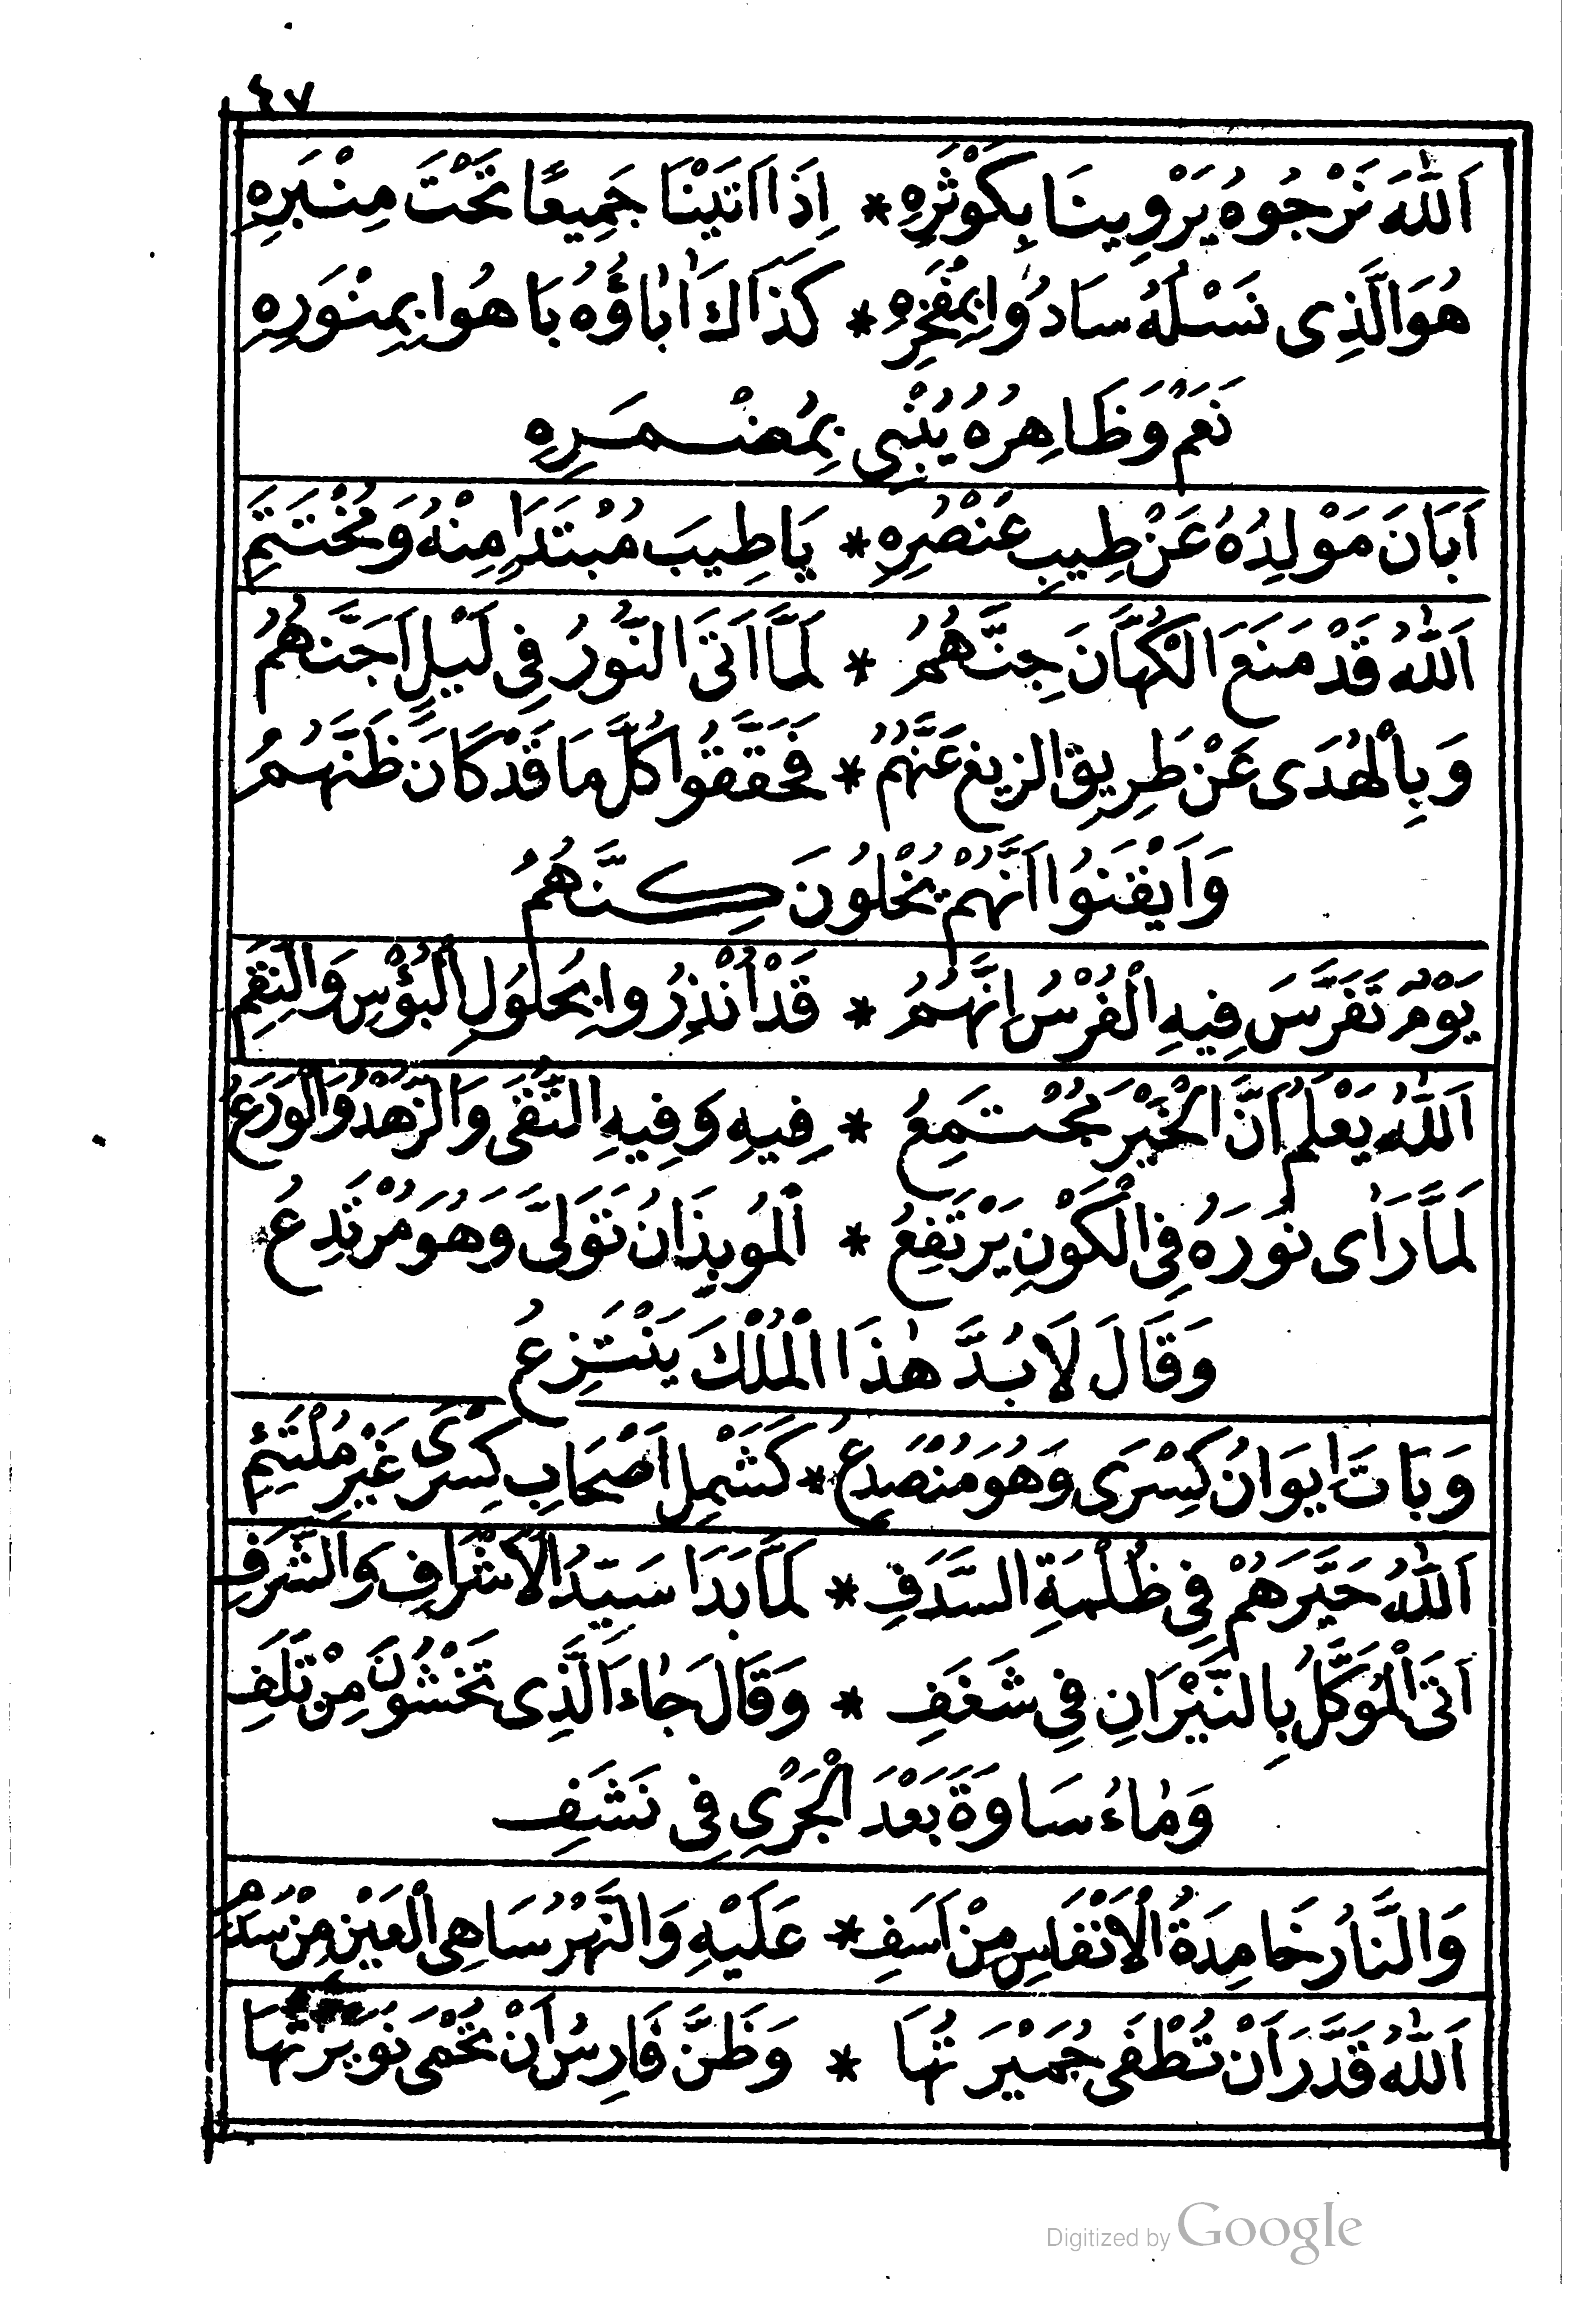 ٤٧
اَللّٰهَ نَرْجُوهُ يَرْوِينَا بِكَوْثَرِهِ * اِذَا اَتَيْنَا جَمِيعًا تَحْتَ مِنْبَرِهِ
هُوَ الَّذِى نَسْلُهُ سَادُوا بِمَفْخَرِهِ * كَذَاكَ اٰبَاؤُهُ بَاهُوا بِمِنْوَرِهِ
نَعَمْ وَظَاهِرُهُ يُنْبِى بِمُضْمَرِهِ
اَبَانَ مَوْلِدُهُ عَنْ طِيبِ عُنْصُرِهِ * يَا طِيبَ مُبْتَدَاٍ مِنْهُ وَمُخْتَتَمِ
اَللّٰهُ قَدْ مَنَعَ الْكُهَّانَ جِنَّهُمُ * لَمَّا اَتَى النُّورُ فِى لَيْلٍ اَجَنَّهُمُ
وَبِالْهُدَى عَنْ طَرِيقِ الزيغ عَنَّهُمُ * فَحَقَّقُوا كُلَّ مَا قَدْ كَانَ ظَنَّهُمُ
وَاَيْقَنُوا اَنَّهُمْ يُخْلُونَ كِنَّهُمُ
يَوْمٌ تَفَرَّسَ فِيهِ الْفُرْسُ اِنَّهُمُ * قَدْ اُنْذِرُوا بِحُلُولِ الْبُؤْسِ وَالنِّقَمِ
اَللّٰهُ يَعْلَمُ اَنَّ الْخَيْرَ مُجْتَمِعُ * فِيهِ وَفِيهِ التُّقَى وَالزُّهْدُ وَالْوَرَعُ
لَمَّا رَاٰى نُورَهُ فِى الْكَوْنِ يَرْتَفِعُ * اَلْمُوبِذَانُ تَوَلَّى وَهُوَ مُرْتَدِعُ
وَقَالَ لَابُدَّ هٰذَا الْمُلْكَ يَنْتَزِعُ
وَبَاتَ اِيوَانُ كِسْرَى وَهُوَ مُنْصَدِعُ * كَشَمْلِ اَصْحَابِ كِسْرَى غَيْرِ مُلْتَئِمِ
اَللّٰهُ حَيَّرَهُمْ فِى ظُلْمَةِ السَّدَفِ * لَمَّا بَدَا سَيِّدُ الْاَشْرَافِ وَالشَّرَفِ
اَتَى الْمُوَكَّلُ بِالنِّيْرَانِ فِى شَغَفِ * وَقَالَ جَاءَ الَّذِى تَخْشَوْنَ مِنْ تَلَفِ
وَمَاءُ سَاوَةَ بَعْدَ الْجَرْىِ فِى نَشَفِ
وَالنَّارُ خَامِدَةُ الْاَنْفَاسِ مِنْ اَسَفِ * عَلَيْهِ وَالنَّهْرُ سَاهِى الْعَيْنِ مِنْ سَدَمِ
اَللّٰهُ قَدَّرَ اَنْ تُطْفَى جُمَيْرَتُهَا * وَظَنَّ فَارِسُ اَنْ تُحْمَى نُوَيْرَتُهَا
Digitized by Google